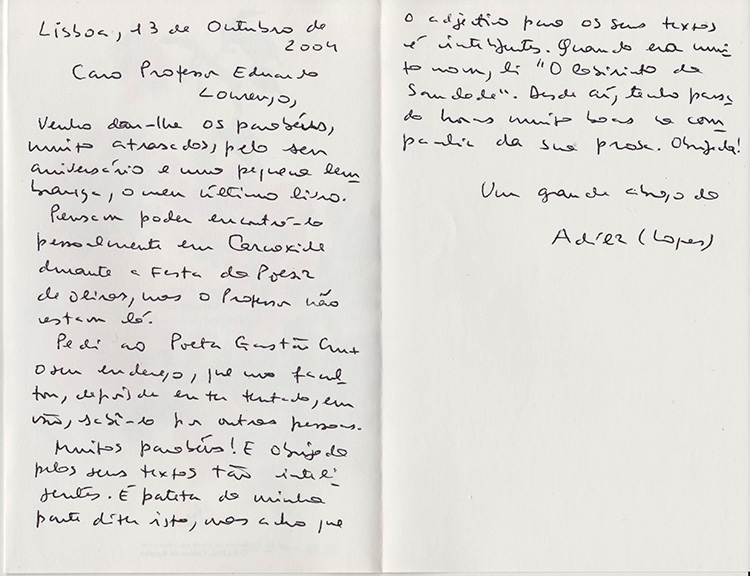 Lisboa, 13 de Outubro de
2004
Caro Professor Eduardo
Lourenço,
Venho dar-lhe os parabéns,
muito atrasados, pelo seu
aniversário e uma pequena lem
brança, o meu último livro.
Pensava poder encontrá-lo
pessoalmente em Carnaxide
durante a Festa da Poesia
de Oeiras, mas o Professor não
estava lá.
Pedi ao Poeta Gastão Cruz
o seu endereço, que mo facul
tou, depois de eu ter tentado, em
vão, sabê-lo por outras pessoas.
Muitos parabéns! E obrigada
pelos seus textos tão inteli
gentes. É pateta da minha
parte dizer isto, mas acho que
o adjectivo para os seus textos
é inteligentes. Quando era mui
to nova, li "O Labirinto da
Saudade". Desde aí, tenho passa
do horas muito boas na com
panhia da sua prosa. Obrigada!
Um grande abraço da
Adília (Lopes)